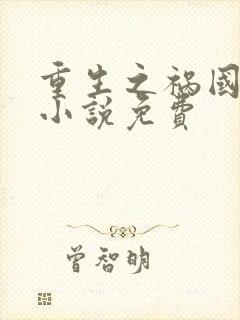 重生之禍國
小說免費
曾智明